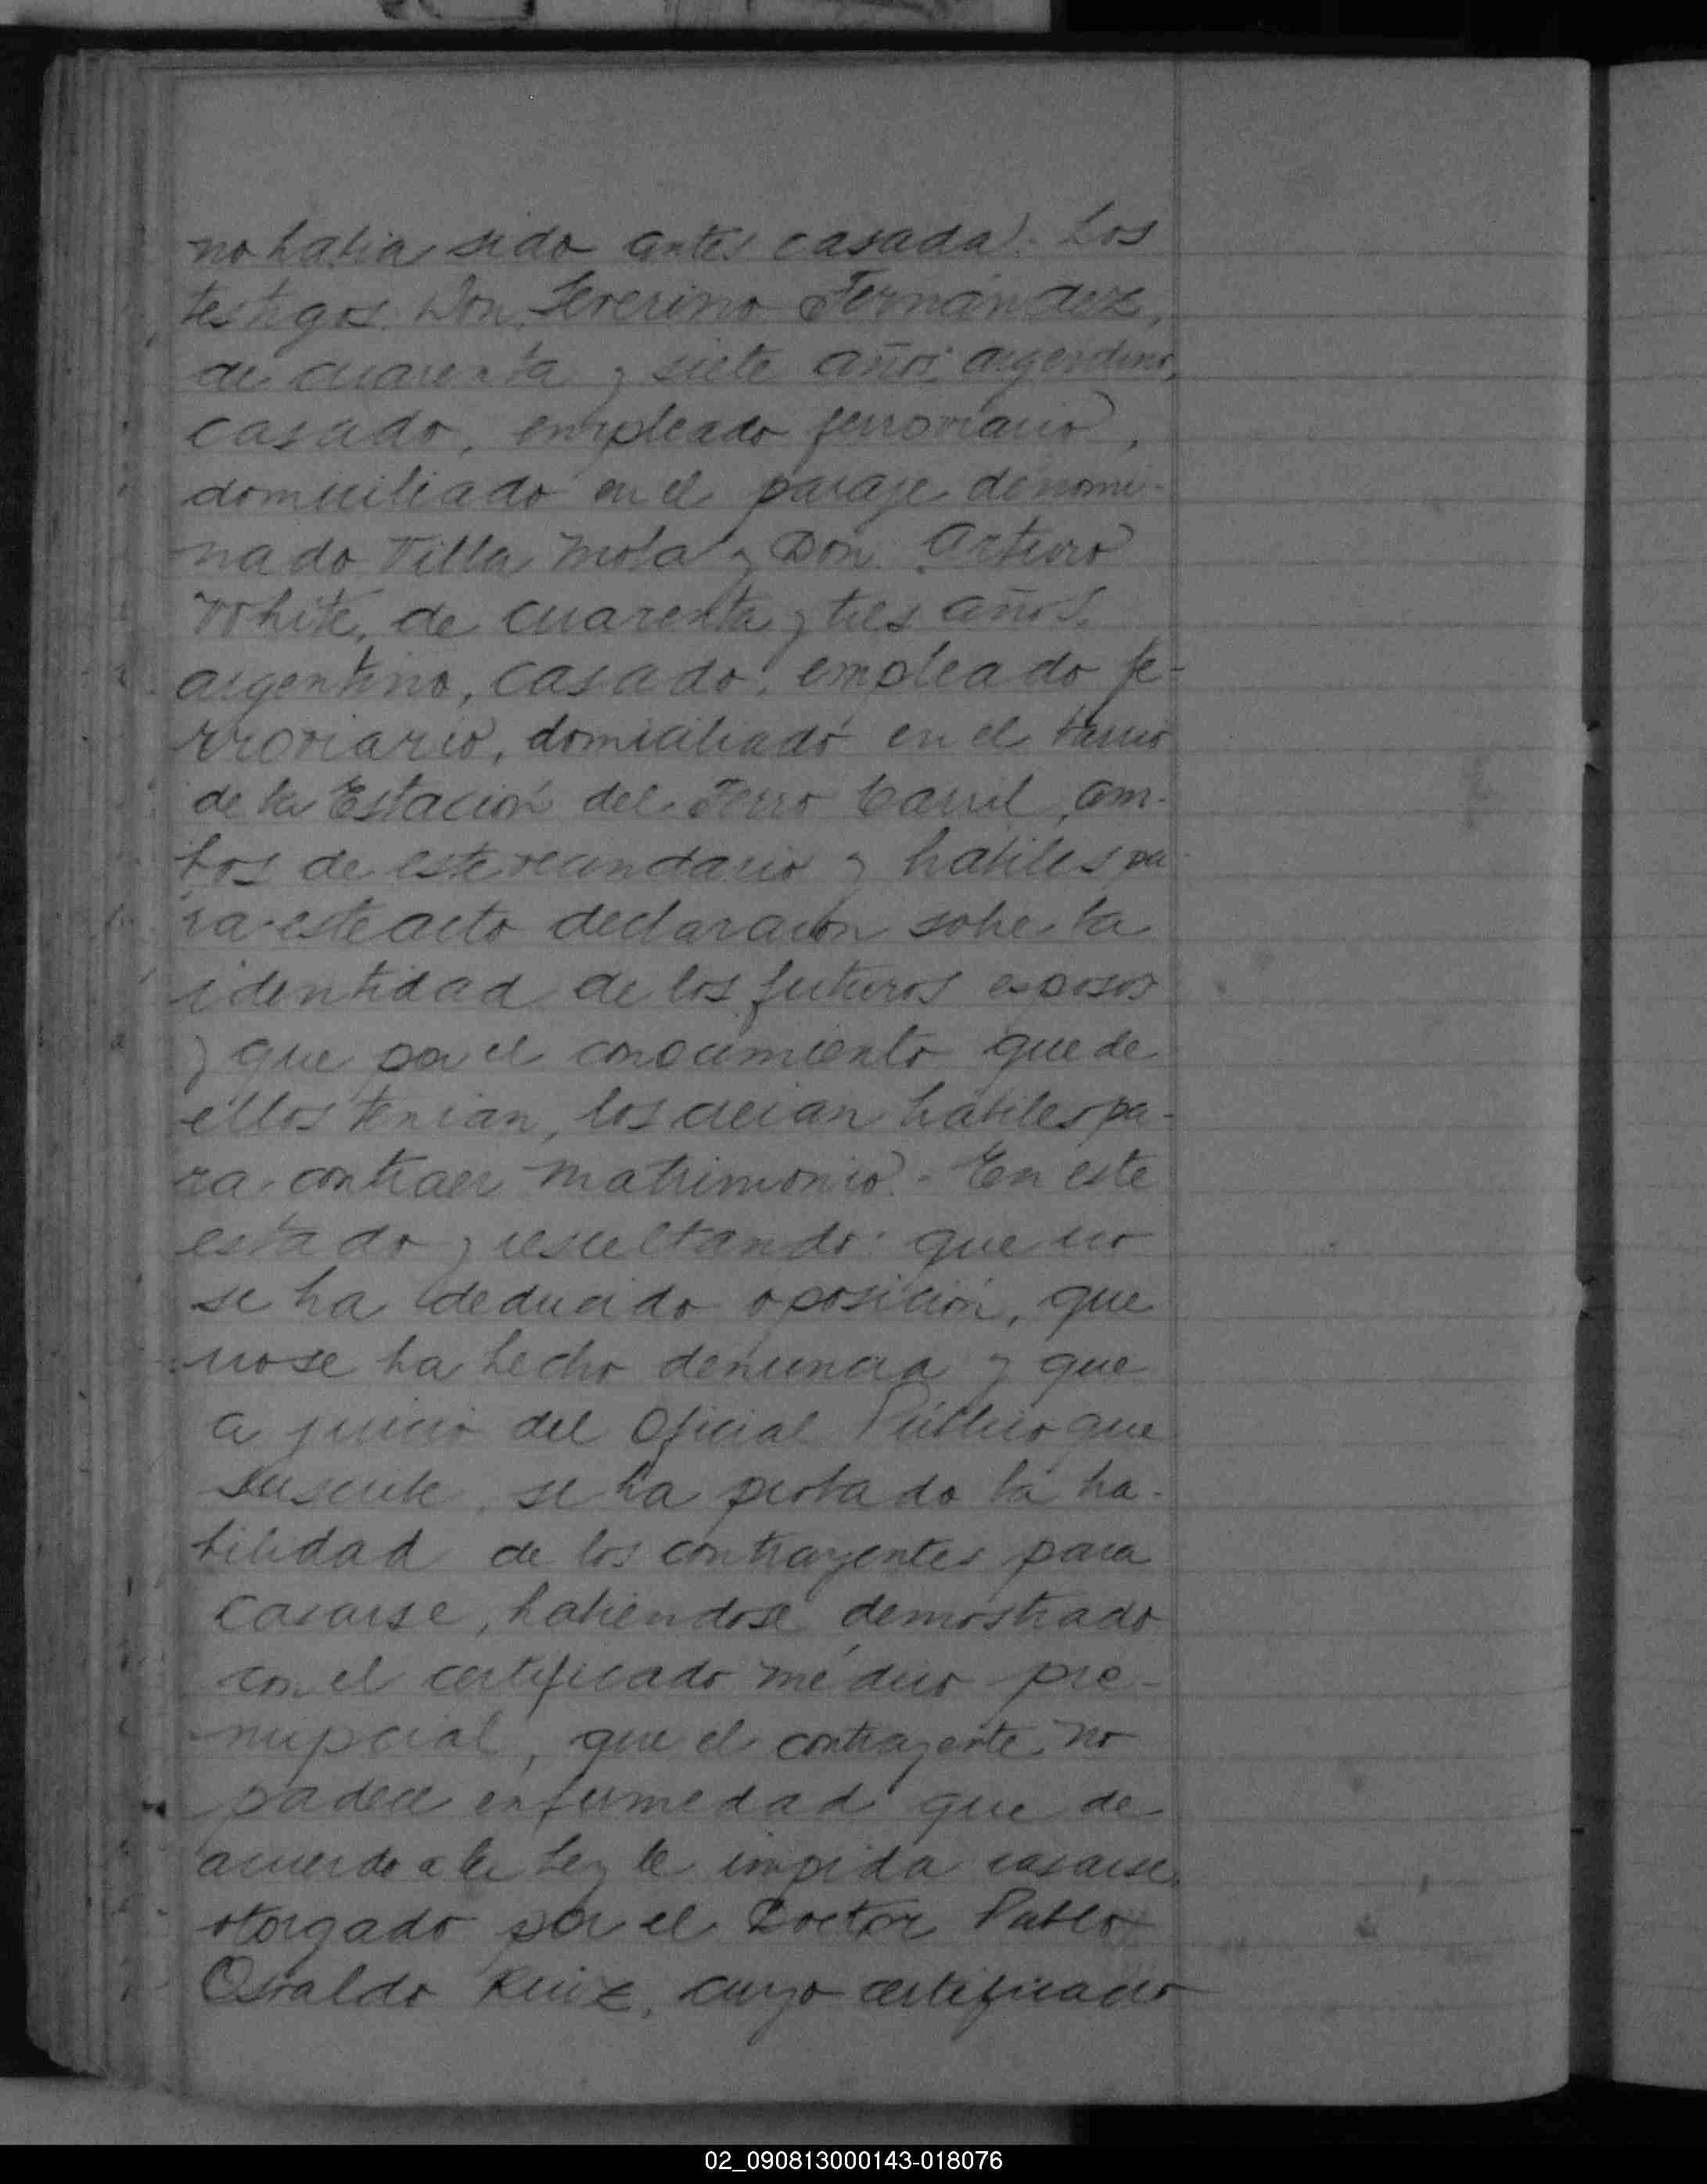 no habia sido antes casada. Los
testigos: Don Severino Fernández,
de cuarenta y siete años, argentino,
casado, empleado ferroviario,
domiciliado en el paraje denomi-
nado Villa Mola y Don Arturo
White, de cuarenta y tres años,
argentino, casado, empleado fe-
rroviario, domiciliado en el barrio
de la Estación del Ferro Carril, am-
bos de este vecindario y habiles pa
ra este acto declararon sobre la
identidad de los futuros esposos
y que por el conocimiento que de
ellos tenian, los creian hábiles pa-
ra contraer matrimonio. En este
estado y resultando: que no
se ha deducido oposición, que
no se ha hecho denuncia y que
a juicio del Oficial Público que
suscribe, se ha probado la ha-
bilidad de los contrayentes para
casarse, habiendose demostrado
con el certificado médico pre-
nupcial, que el contrayente no
padece enfermedad que de
acuerdo a la Ley le impida casarse,
otorgado por el Doctor Pablo
Osvaldo Ruiz, cuyo certificado
02_090813000143-018076